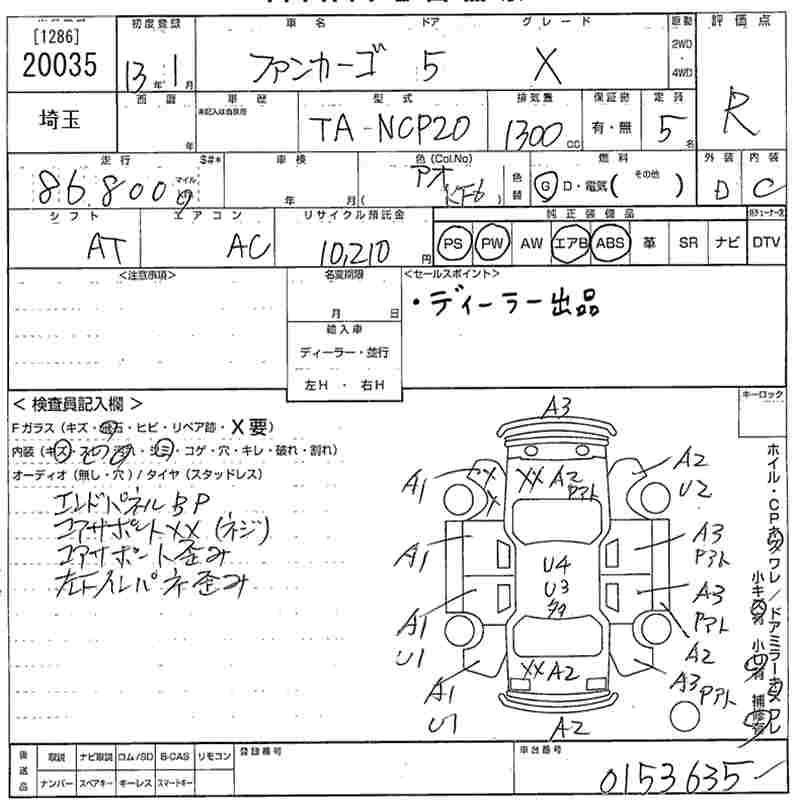 [1286]
20035
初度登録
13年1月
車名
ファンカーゴ
ドア
5
グレード
X
駆動
2WD
4WD
評価点
R
埼玉
西暦
年
車歴
未記入は自家用
型式
TA-NCP20
排気量
1300cc
保証書
有・無
定員
5名
走行
$#*
86,800
マイル
車検
年 月(
色(Col.No)
アオ
KF6
)
色替
燃料
G D・電気( その他 )
外装
D
内装
C
シフト
AT
エアコン
AC
リサイクル預託金
10,210円
純正装備品
PS PW AW エアB ABS 革 SR ナビ DTV
<注意事項>
名変期限
月 日
輸入車
ディーラー・並行
左H・右H
<セールスポイント>
・ディーラー出品
キーロック
<検査員記入欄>
Fガラス(キズ・飛石・ヒビ・リペア跡・X要)
・シミ・コゲ・穴・キレ・破れ・割れ)
オーディオ(無し・穴)/タイヤ(スタッドレス)
エンドパネルBP
コアサポートXX(ネジ)
コアサポート歪み
歪み
A3
A1
XX
A2
アト
A2
U2
A1
U4
U3
A3
アト
A1
U1
A3
アト
A2
A1
U1
XX A2
A3
アト
A2
ホイル・CP
ワレ/ドアミラー
後送品
取説 ナビ取説 ロム/SD B-CAS リモコン
ナンバー スペアキー キーレス スマートキー
登録番号
車台番号
0153635